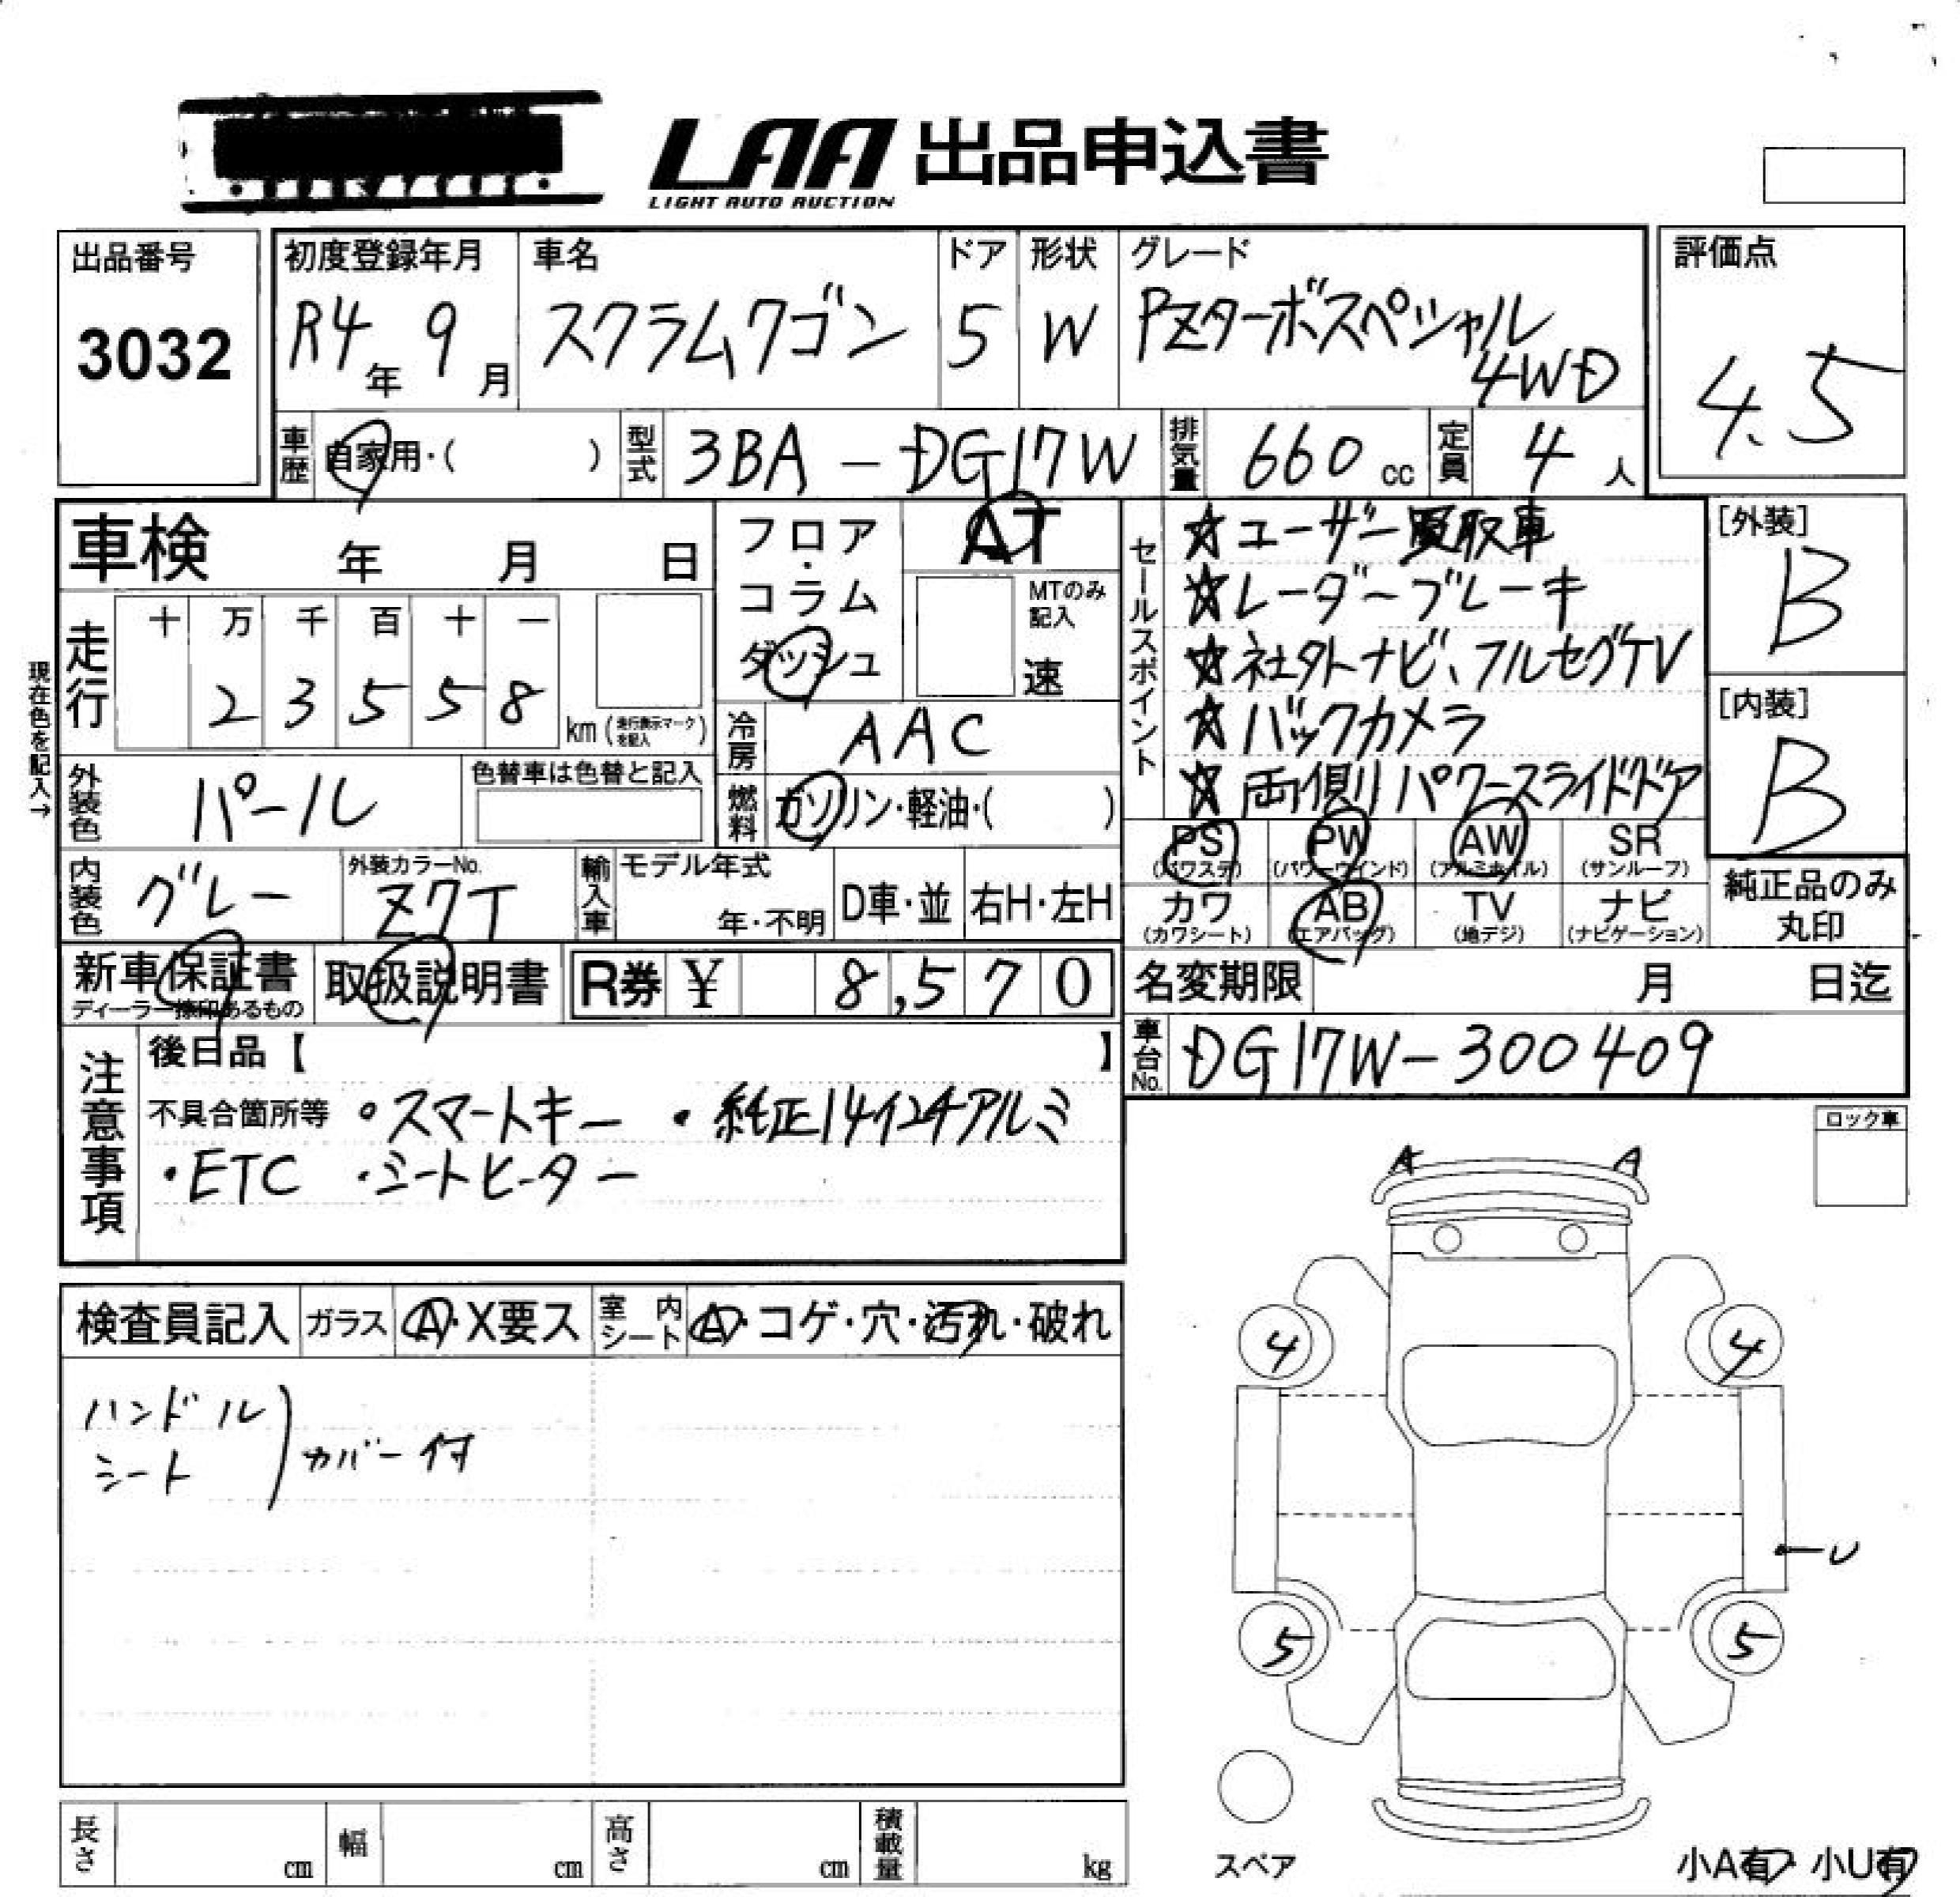 LAA 出品申込書
LIGHT AUTO AUCTION
出品番号
3032
初度登録年月
R4年 9月
車名
スクラムワゴン
ドア
5
形状
W
グレード
PZターボスペシャル
4WD
評価点
4.5
車歴 自家用・( )
型式 3BA-DG17W
排気量 660 cc
定員 4 人
車検 年 月 日
フロア・コラム
ダッシュ
AT
MTのみ記入
速
セールスポイント
☆ユーザー買取車
☆レーダーブレーキ
☆社外ナビ、フルセグTV
☆バックカメラ
☆両側リパワースライドドア
[外装]
B
[内装]
B
現在色を記入→
走行
十 万 千 百 十 一
2 3 5 5 8
km (走行表示マークを記入)
冷房 AAC
外装色 パール
色替車は色替と記入
燃料 ガソリン・軽油・( )
内装色 グレー
外装カラーNo.
Z7T
輸入車
モデル年式
年・不明
D車・並
右H・左H
PS (パワステ)
PW (パワーウインド)
AW (アルミホイル)
SR (サンルーフ)
カワ (カワシート)
AB (エアバッグ)
TV (地デジ)
ナビ (ナビゲーション)
純正品のみ
丸印
新車保証書
ディーラー捺印あるもの
取扱説明書
R券 ¥ 8,570
名変期限 月 日迄
車台No. DG17W-300409
注意事項
後日品【 】
不具合箇所等 ・スマートキー ・純正14インチアルミ
・ETC ・シートヒーター
ロック車
A A
検査員記入
ガラス A・X要ス
室内シート A・コゲ・穴・汚れ・破れ
ハンドル
シート
カバー付
4 4
U
5 5
スペア
長さ cm
幅 cm
高さ cm
積載量 kg
小A有・小U有